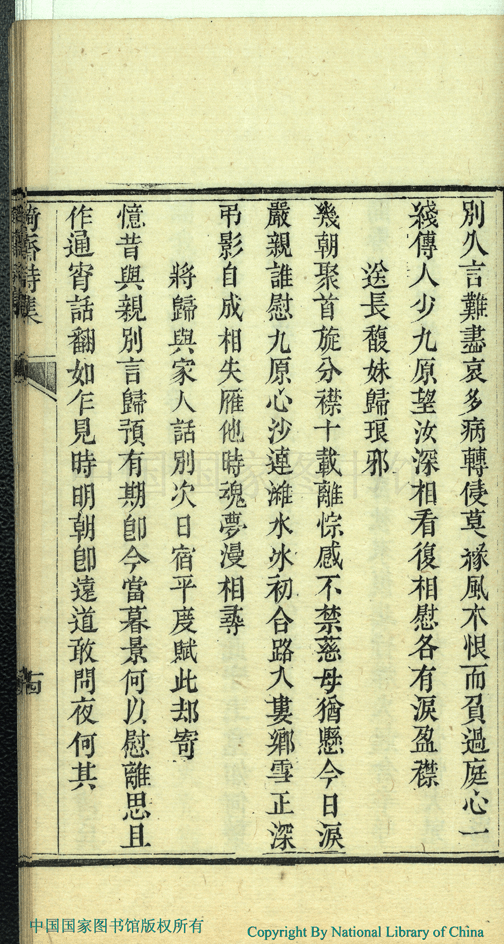 別久言難盡哀多病轉侵莫緣風木恨而負過庭心一
綫傳人少九原望汝深相看復相慰各有淚盈襟
送長馥妹歸琅邪
幾朝聚首旋分襟十載離悰感不禁慈母猶懸今日淚
嚴親誰慰九原心沙連濰水冰初合路入婁鄉雪正深
弔影自成相失雁他時魂夢漫相尋
將歸與家人話別次日宿平度賦此却寄
憶昔與親別言歸預有期卽今當暮景何以慰離思且
作通宵話翻如乍見時明朝卽遠道敢問夜何其
詩集
中国国家图书馆
中国国家图书馆版权所有
Copyright By National Library of China